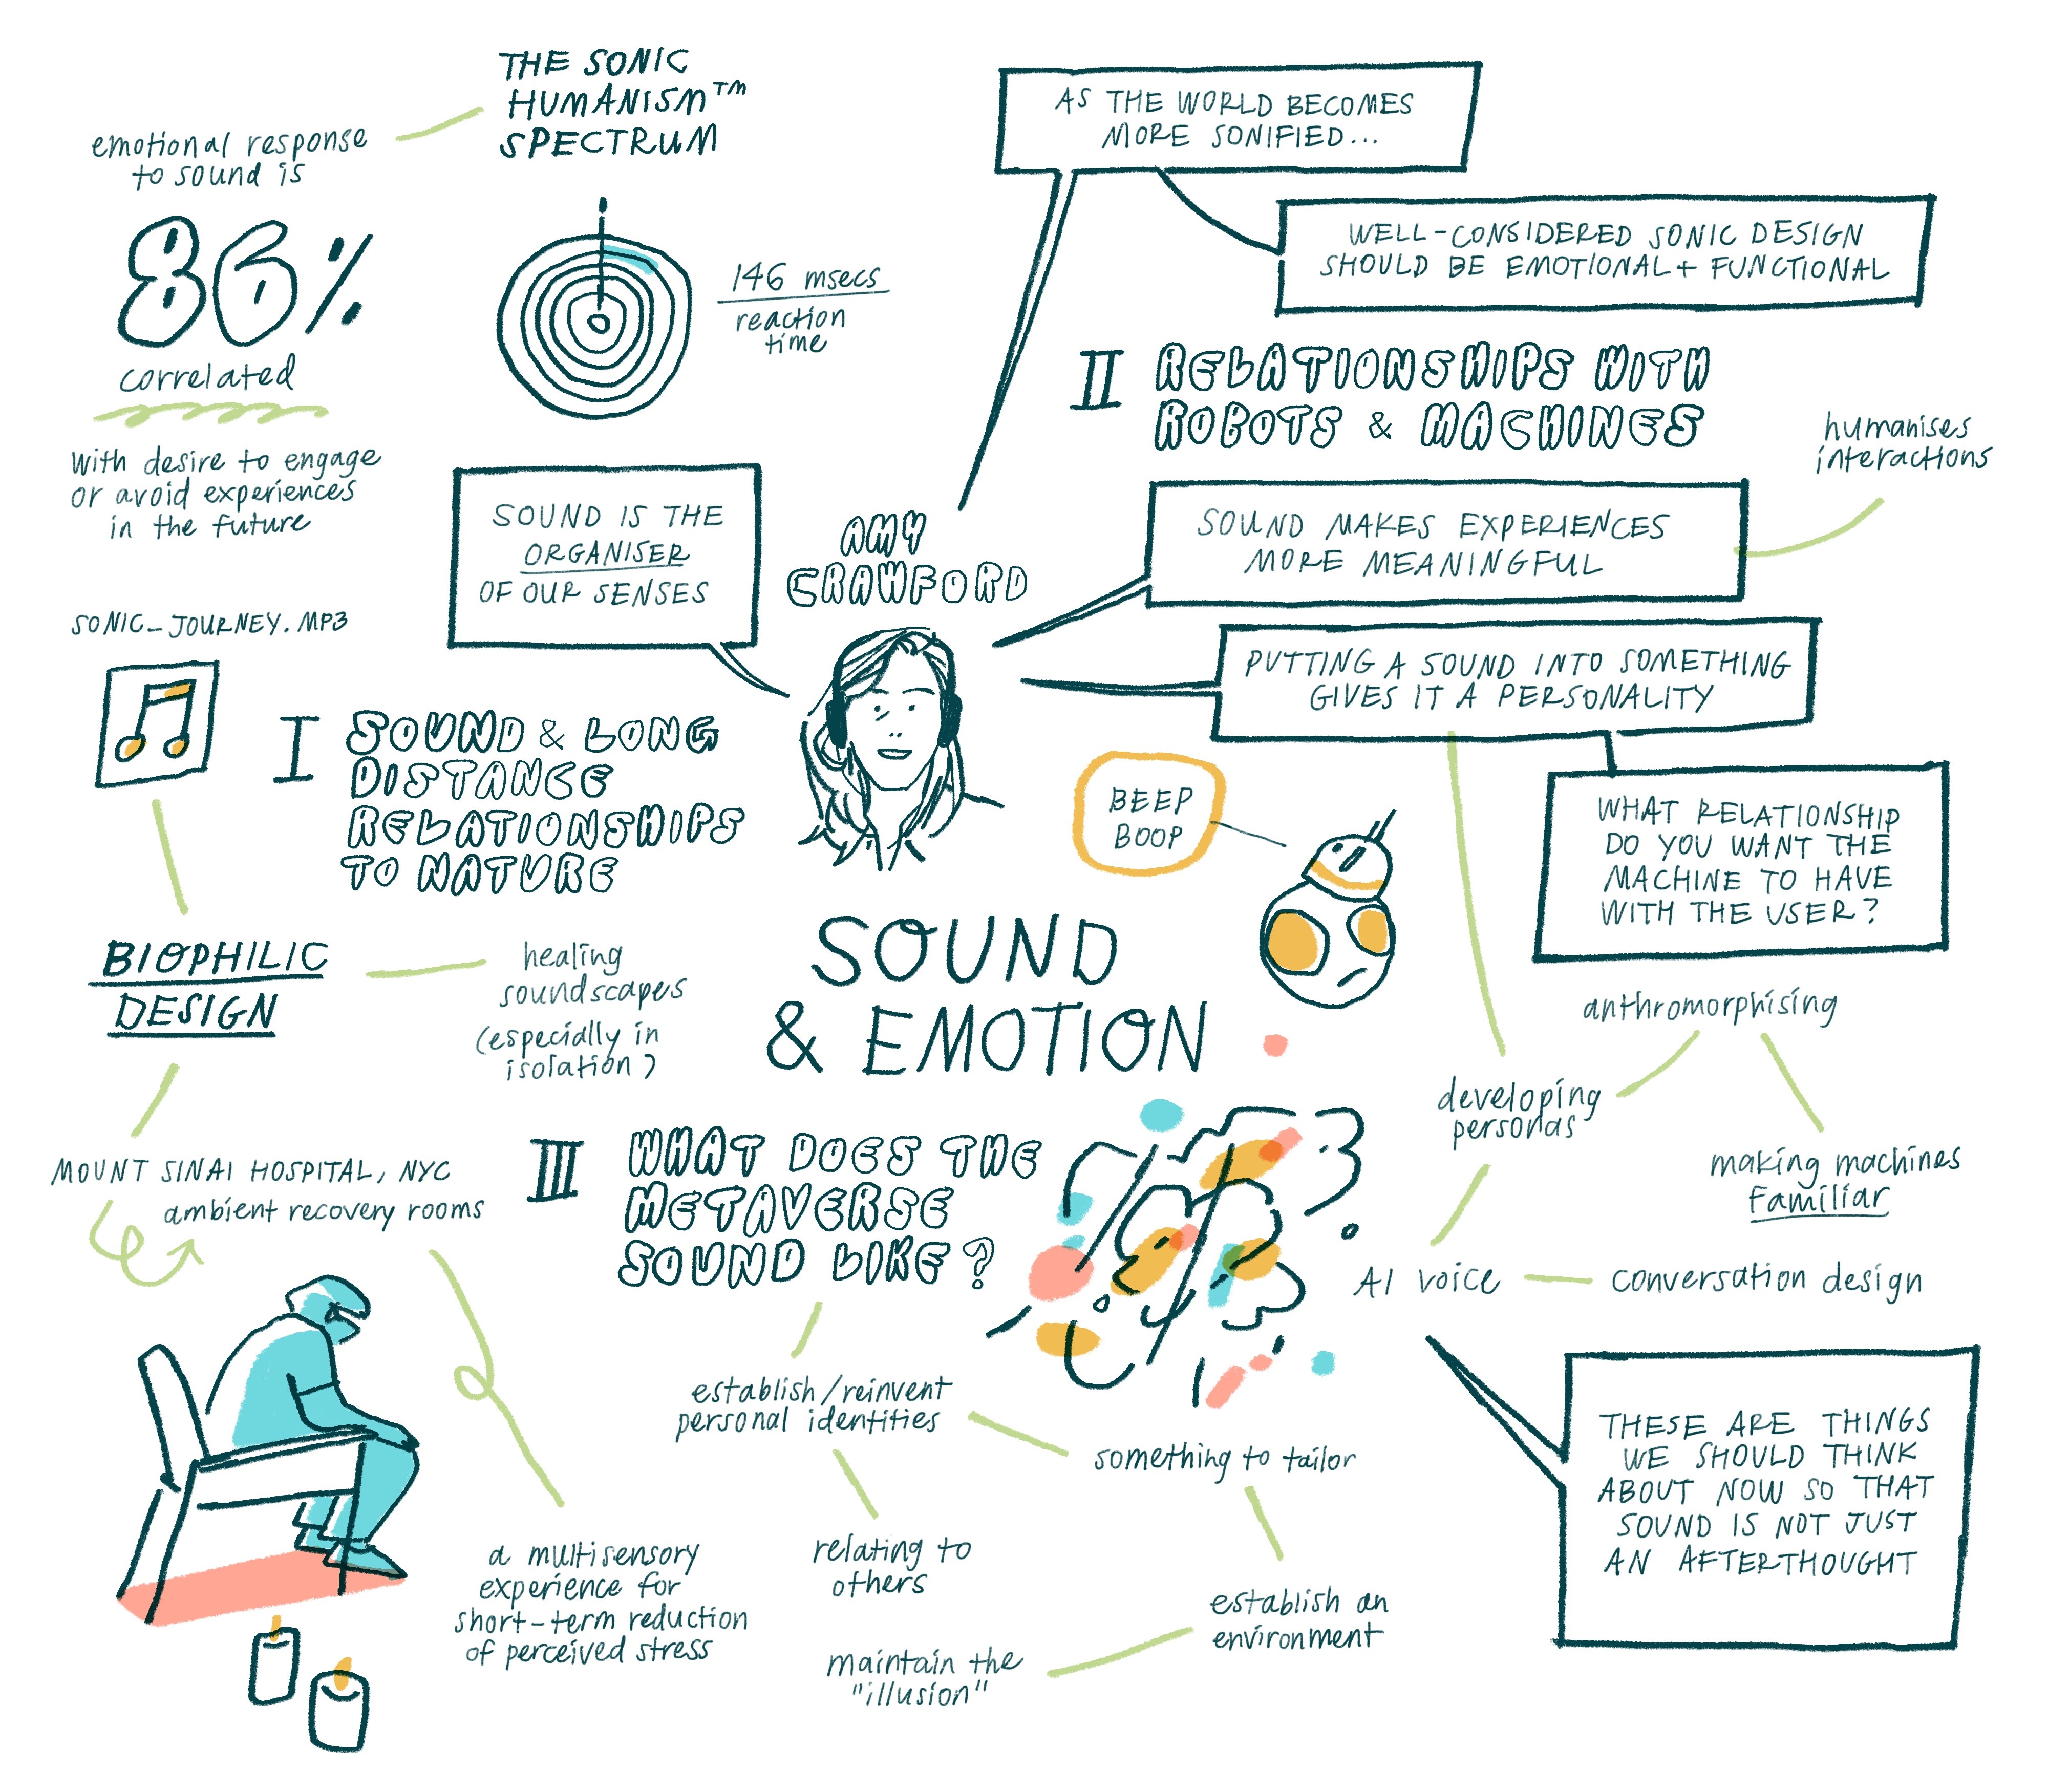 THE SONIC
HUMANISM™
SPECTRUM
emotional response
to sound is
86%
correlated
with desire to engage
or avoid experiences
in the future
146 msecs
reaction
time
AS THE WORLD BECOMES
MORE SONIFIED...
WELL-CONSIDERED SONIC DESIGN
SHOULD BE EMOTIONAL + FUNCTIONAL
SOUND IS THE
ORGANISER
OF OUR SENSES
AMY
CRAWFORD
SOUND
& EMOTION
SONIC_JOURNEY.MP3
I SOUND & LONG
DISTANCE
RELATIONSHIPS
TO NATURE
BIOPHILIC
DESIGN
healing
soundscapes
(especially in
isolation)
MOUNT SINAI HOSPITAL, NYC
ambient recovery rooms
a multisensory
experience for
short-term reduction
of perceived stress
II RELATIONSHIPS WITH
ROBOTS & MACHINES
humanises
interactions
SOUND MAKES EXPERIENCES
MORE MEANINGFUL
PUTTING A SOUND INTO SOMETHING
GIVES IT A PERSONALITY
BEEP
BOOP
WHAT RELATIONSHIP
DO YOU WANT THE
MACHINE TO HAVE
WITH THE USER?
anthromorphising
developing
personas
making machines
familiar
AI voice
conversation design
THESE ARE THINGS
WE SHOULD THINK
ABOUT NOW SO THAT
SOUND IS NOT JUST
AN AFTERTHOUGHT
III WHAT DOES THE
METAVERSE
SOUND LIKE?
establish/reinvent
personal identities
something to tailor
relating to
others
establish an
environment
maintain the
"illusion"